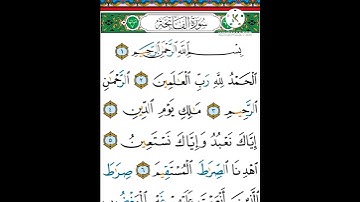 سُورَةُ الْفَاتِحَةِ
بِسْمِ ٱللَّهِ ٱلرَّحْمَٰنِ ٱلرَّحِيمِ ١
ٱلْحَمْدُ لِلَّهِ رَبِّ ٱلْعَٰلَمِينَ ٢ ٱلرَّحْمَٰنِ
ٱلرَّحِيمِ ٣ مَٰلِكِ يَوْمِ ٱلدِّينِ ٤
إِيَّاكَ نَعْبُدُ وَإِيَّاكَ نَسْتَعِينُ ٥
ٱهْدِنَا ٱلصِّرَٰطَ ٱلْمُسْتَقِيمَ ٦ صِرَٰطَ
ٱلَّذِينَ أَنْعَمْتَ عَلَيْهِمْ غَيْرِ ٱلْمَغْضُوبِ